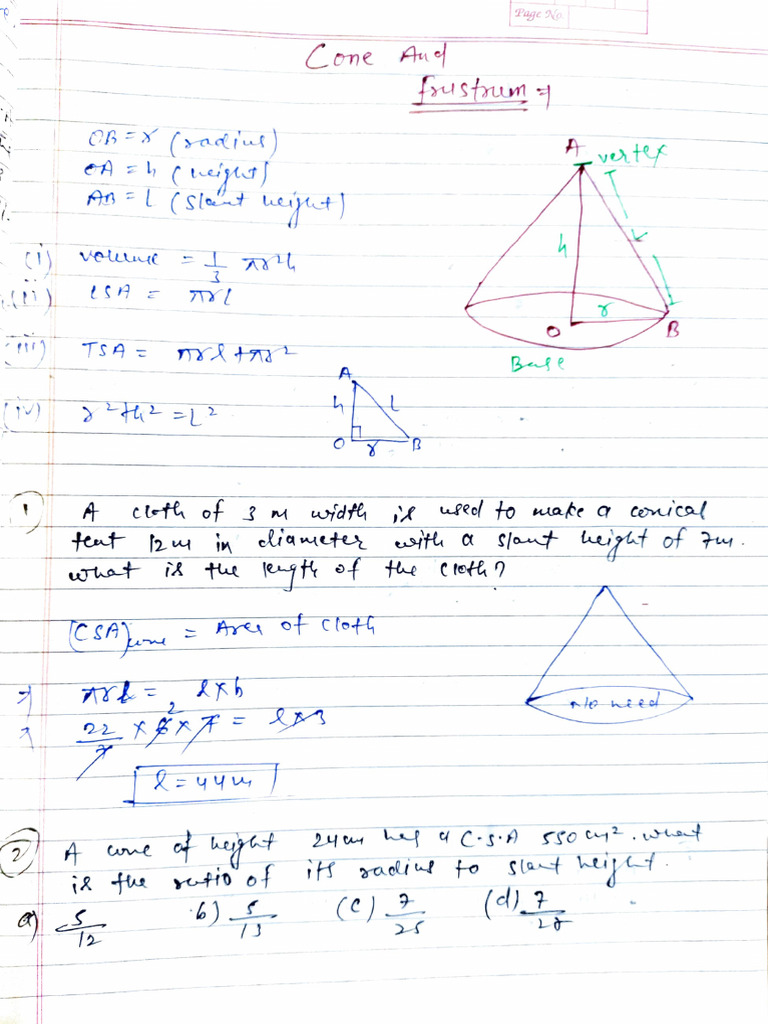 Page No.
Cone And
frustrum ⇒
OB = r (radius)
OA = h (height)
AB = l (slant height)
(i) volume = 1/3 πr²h
(ii) LSA = πrl
(iii) TSA = πrl + πr²
(iv) r² + h² = l²
A vertex
h
r
O B
Base
A
h l
O r B
1 A cloth of 3 m width is used to make a conical
tent 12m in diameter with a slant height of 7m.
what is the length of the cloth?
(CSA)cone = Area of cloth
⇒ πrl = l×b
⇒ 22/7 × 6 × 7 = l×3
2
l = 44m
No need
2 A cone of height 24cm has a C.S.A 550 cm². what
is the ratio of its radius to slant height.
a) 5/12 b) 5/13 (c) 7/25 (d) 7/